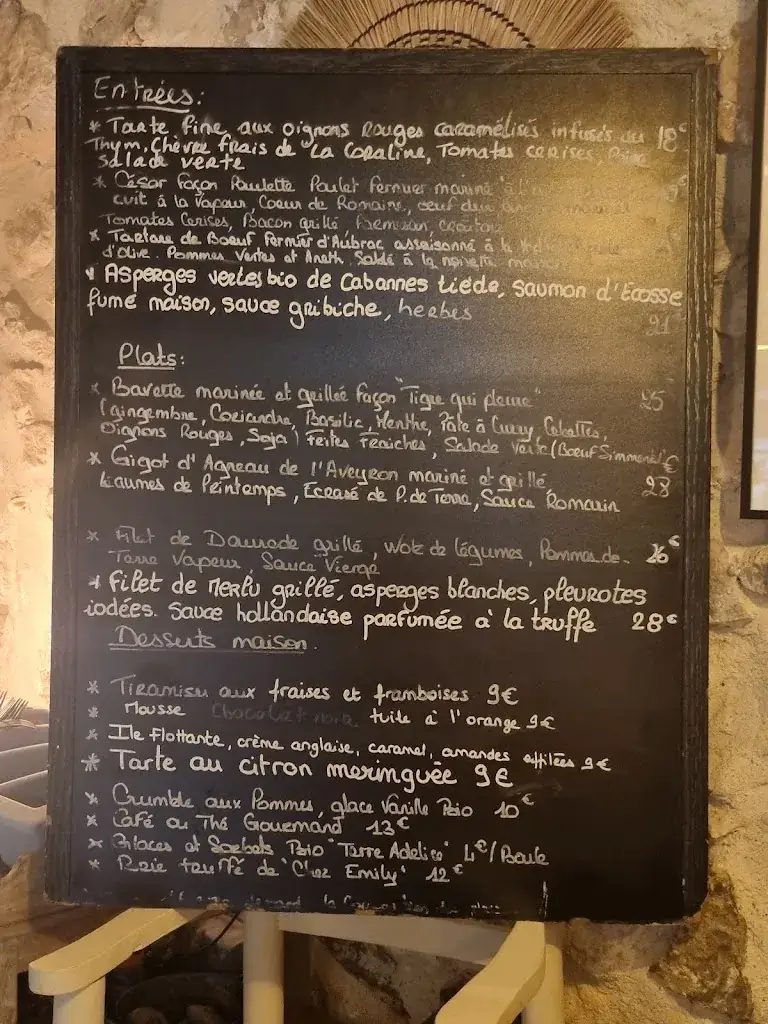 Entrées:
* Tarte fine aux oignons Rouges caramélisés infusés au 18€
Thym, Chèvre frais de "La Coraline, Tomates cerises,
salade verte
* César façon Paulette Poulet Fermier mariné
cuit à la Vapeur, Coeur de Romaine, oeuf dur
Tomates Cerises, Bacon grillé Parmesan, croutons
* Tartare de Boeuf Fermier d'Aubrac assaisonné à la
d'olive. Pommes Vertes et Aneth. à la
* Asperges vertes bio de Cabannes tiède, saumon d'Ecosse
fumé maison, sauce gribiche, herbes
21
Plats:
* Bavette marinée et grillée façon "Tigre qui pleure" 25
(gingembre, Coriandre, Basilic, Menthe, Pâte à Curry, Cebettes,
Oignons Rouges, Soja) Frites Fraiches, Salade Verte (Boeuf Simmental) €
* Gigot d'Agneau de l'Aveyron mariné et grillé 28
Légumes de Printemps, Ecrasé de P. de Terre, Sauce Romarin
* Filet de Daurade grillé, Wok de légumes, Pommes de 26€
Terre Vapeur, Sauce Vierge
* Filet de Merlu grillé, asperges blanches, pleurotes
iodées. Sauce hollandaise parfumée à la truffe 28€
Desserts maison
* Tiramisu aux fraises et framboises 9€
* Mousse Chocolat noir tuile à l'orange 9€
* Ile flottante, crème anglaise, caramel, amandes effilées 9€
* Tarte au citron meringuée 9€
* Crumble aux Pommes, glace Vanille Bio 10€
* Café ou Thé Gourmand 13€
* Glaces et Sorbets Bio "Terre Adelice" 4€/Boule
* Brie truffé de "Chez Emily" 12€